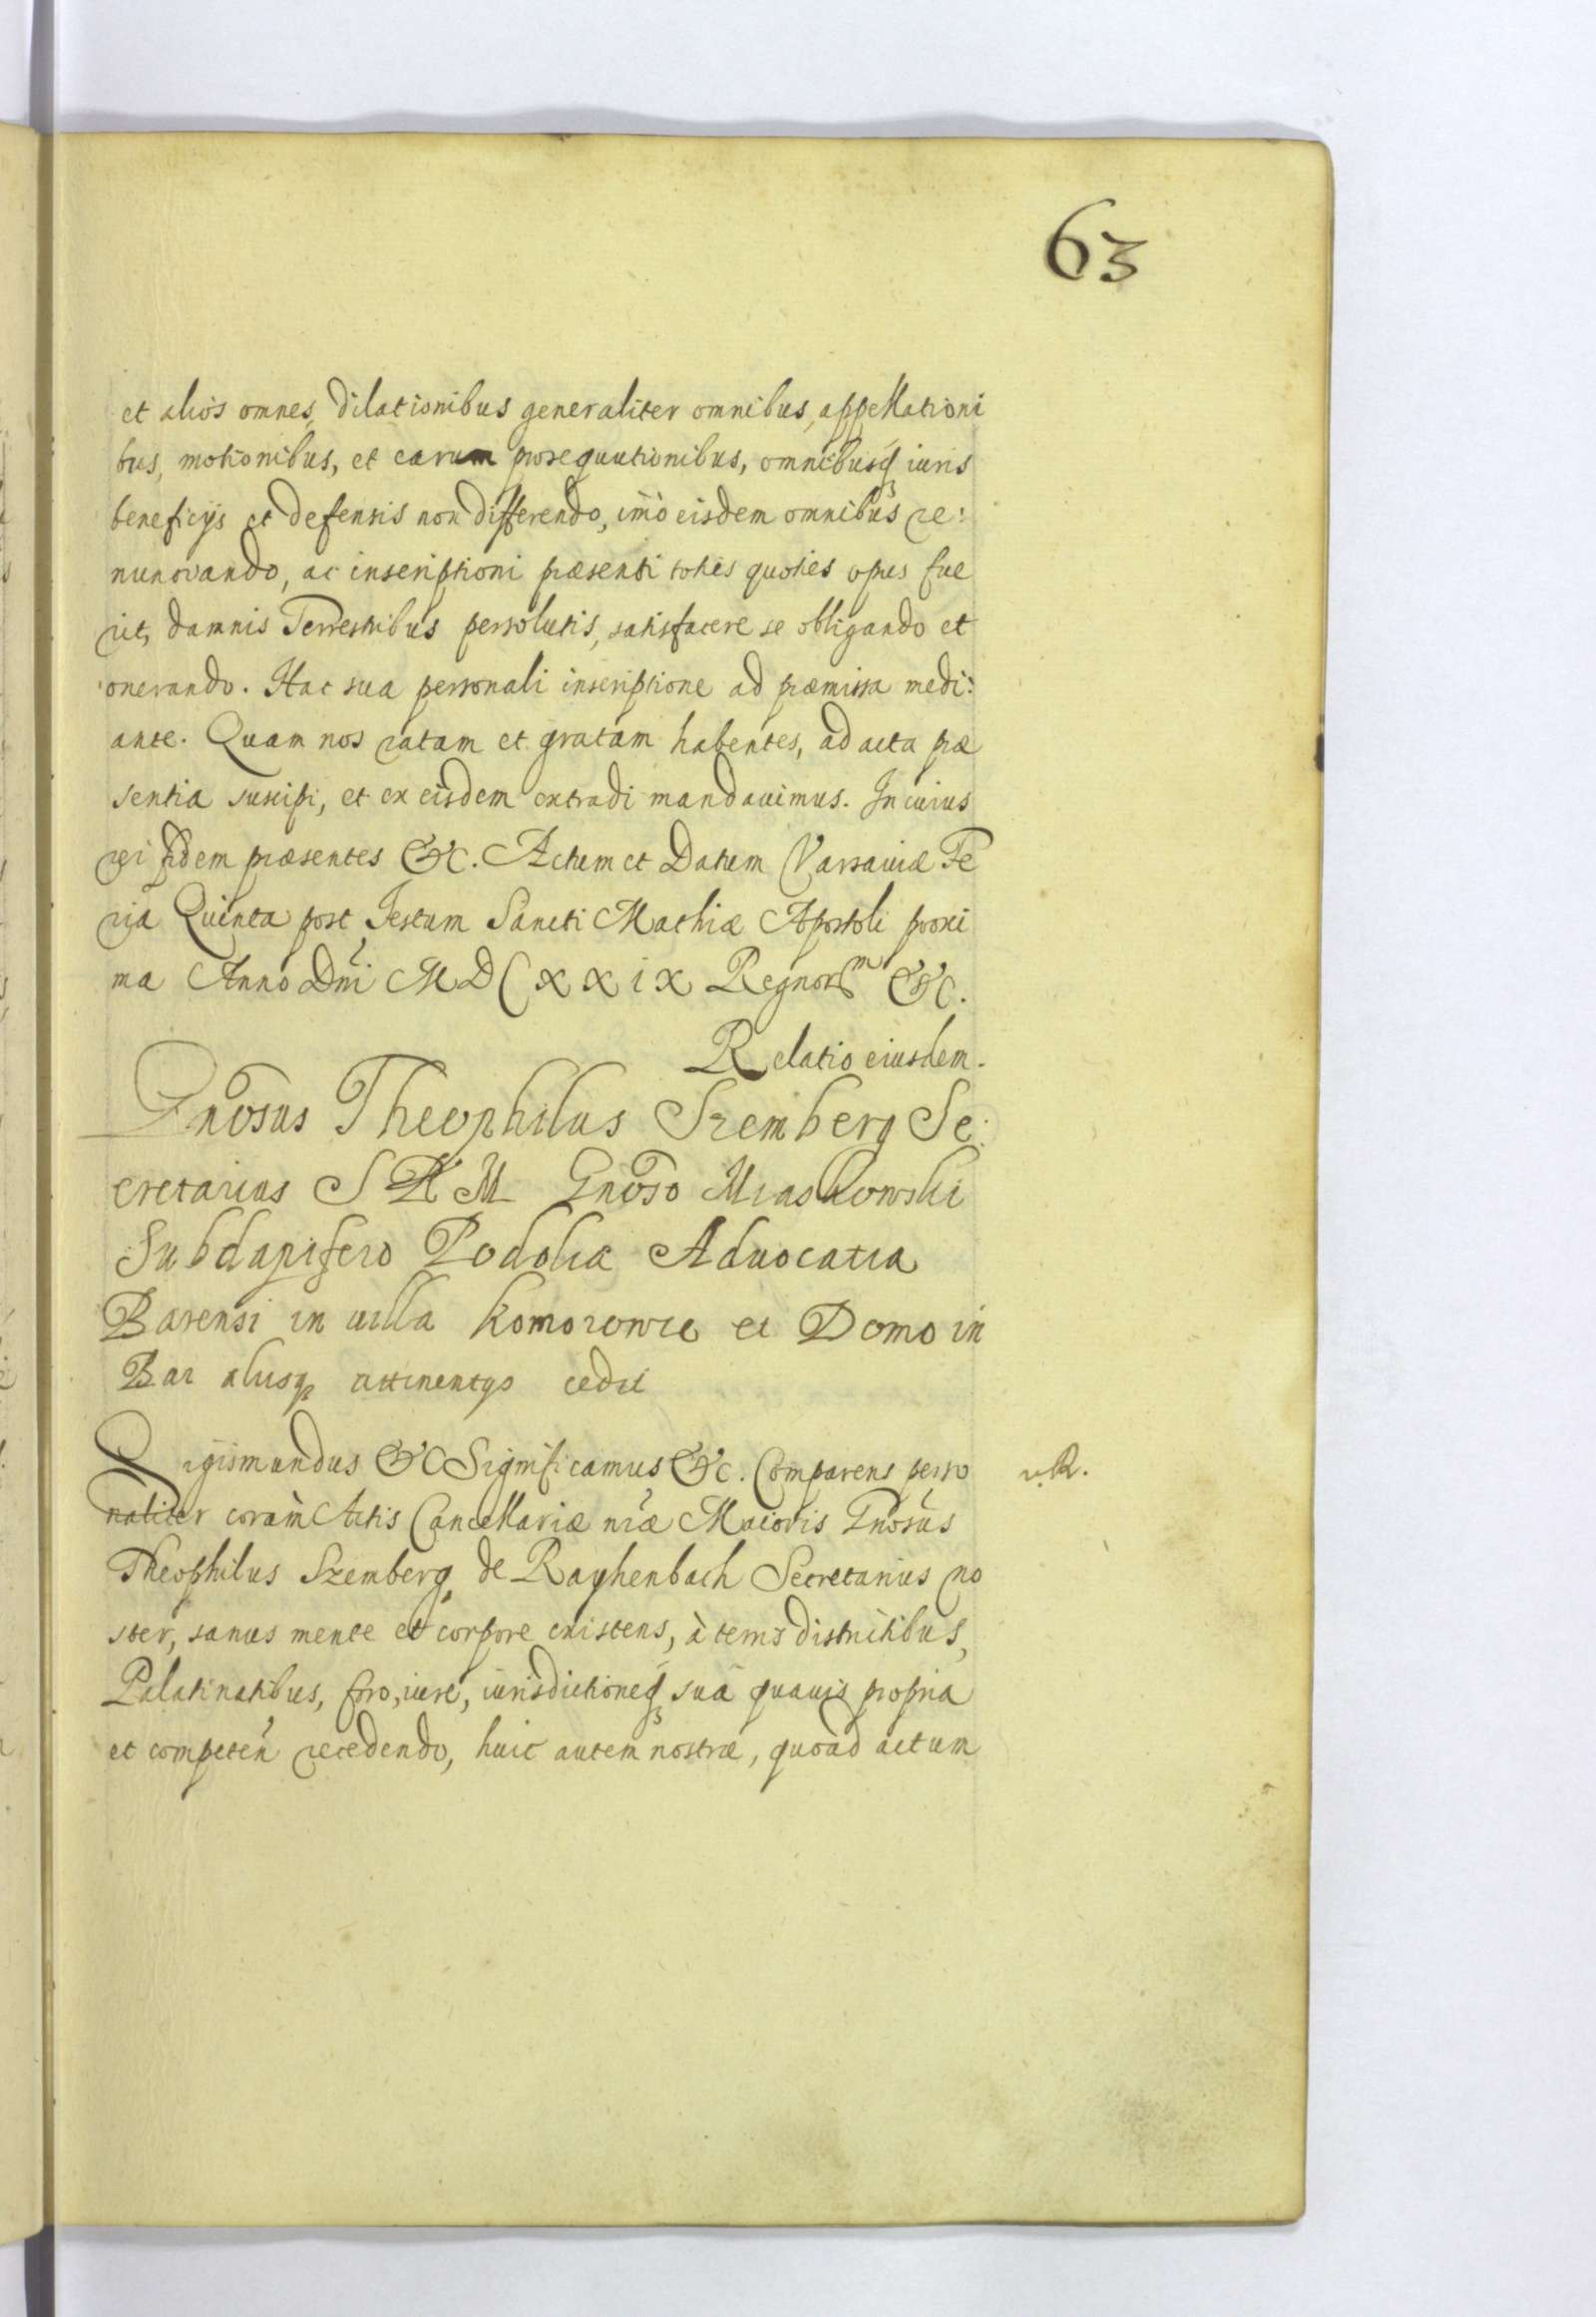 63
et alios omnes, dilationibus generaliter omnibus, appellationi
bus, motionibus, et earum prosequutionibus, omnibusq iuris
beneficijs et defensis non differendo, imò eisdem omnibus re:
nunciando, ac inscriptioni præsenti toties quoties opus fue
rit, damnis Terrestribus persolutis, satisfacere se obligando et
onerando. Hac sua personali inscriptione ad præmissa medi:
ante. Quam nos ratam et gratam habentes, ad acta præ
sentia suscipi, et ex eisdem extradi mandauimus. In cuius
rei fidem præsentes &c. Actum et Datum Varsauiæ Fe
ria Quinta post Festum Sancti Mathiæ Apostoli proxi
ma Anno Dni MDCxxix Regnorm &c.
Relatio eiusdem.
Gnosus Theophilus Szemberg Se:
cretarius S R M Gnoso Miaskowski
Subdapifero Podoliæ Aduocatia
Barensi in uilla Komorowce et Domo in
Bar alijsq attinentijs cedit
Sigismundus &c Significamus &c. Comparens perso
naliter coràm Actis Cancellariæ nræ Maioris Gnosus
Theophilus Szemberg de Rayhenbach Secretarius no
ster, sanus mente et corpore existens, à terris districtibus,
Palatinatibus, foro, iure, iurisdictioneq suâ quauis propria
et competen recedendo, huic autem nostræ, quoàd actum
R.